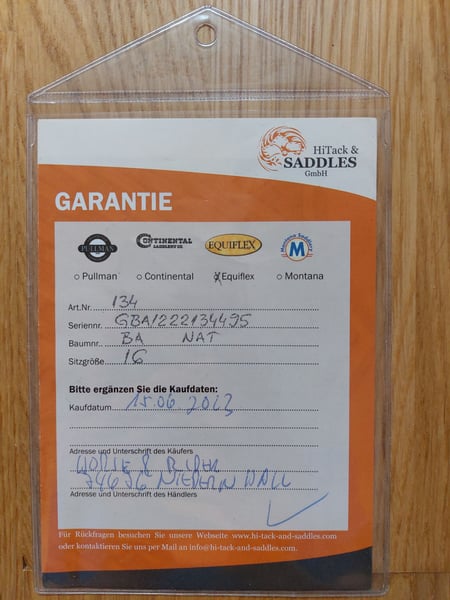 HiTack &
SADDLES
GmbH
GARANTIE
PULLMAN
CONTINENTAL
SADDLERY CO.
EQUIFLEX
Montana Saddlery
M
Pullman Continental Equiflex Montana
Art.Nr. 134
Seriennr. GBA/222134495
Baumnr.. BA NAT
Sitzgröße 16
Bitte ergänzen Sie die Kaufdaten:
Kaufdatum 15.06.2023
Adresse und Unterschrift des Käufers
HORSE & RIDER
74676 NIEDERNHALL
Adresse und Unterschrift des Händlers
Für Rückfragen besuchen Sie unsere Webseite www.hi-tack-and-saddles.com
oder kontaktieren Sie uns per Mail an info@hi-tack-and-saddles.com.